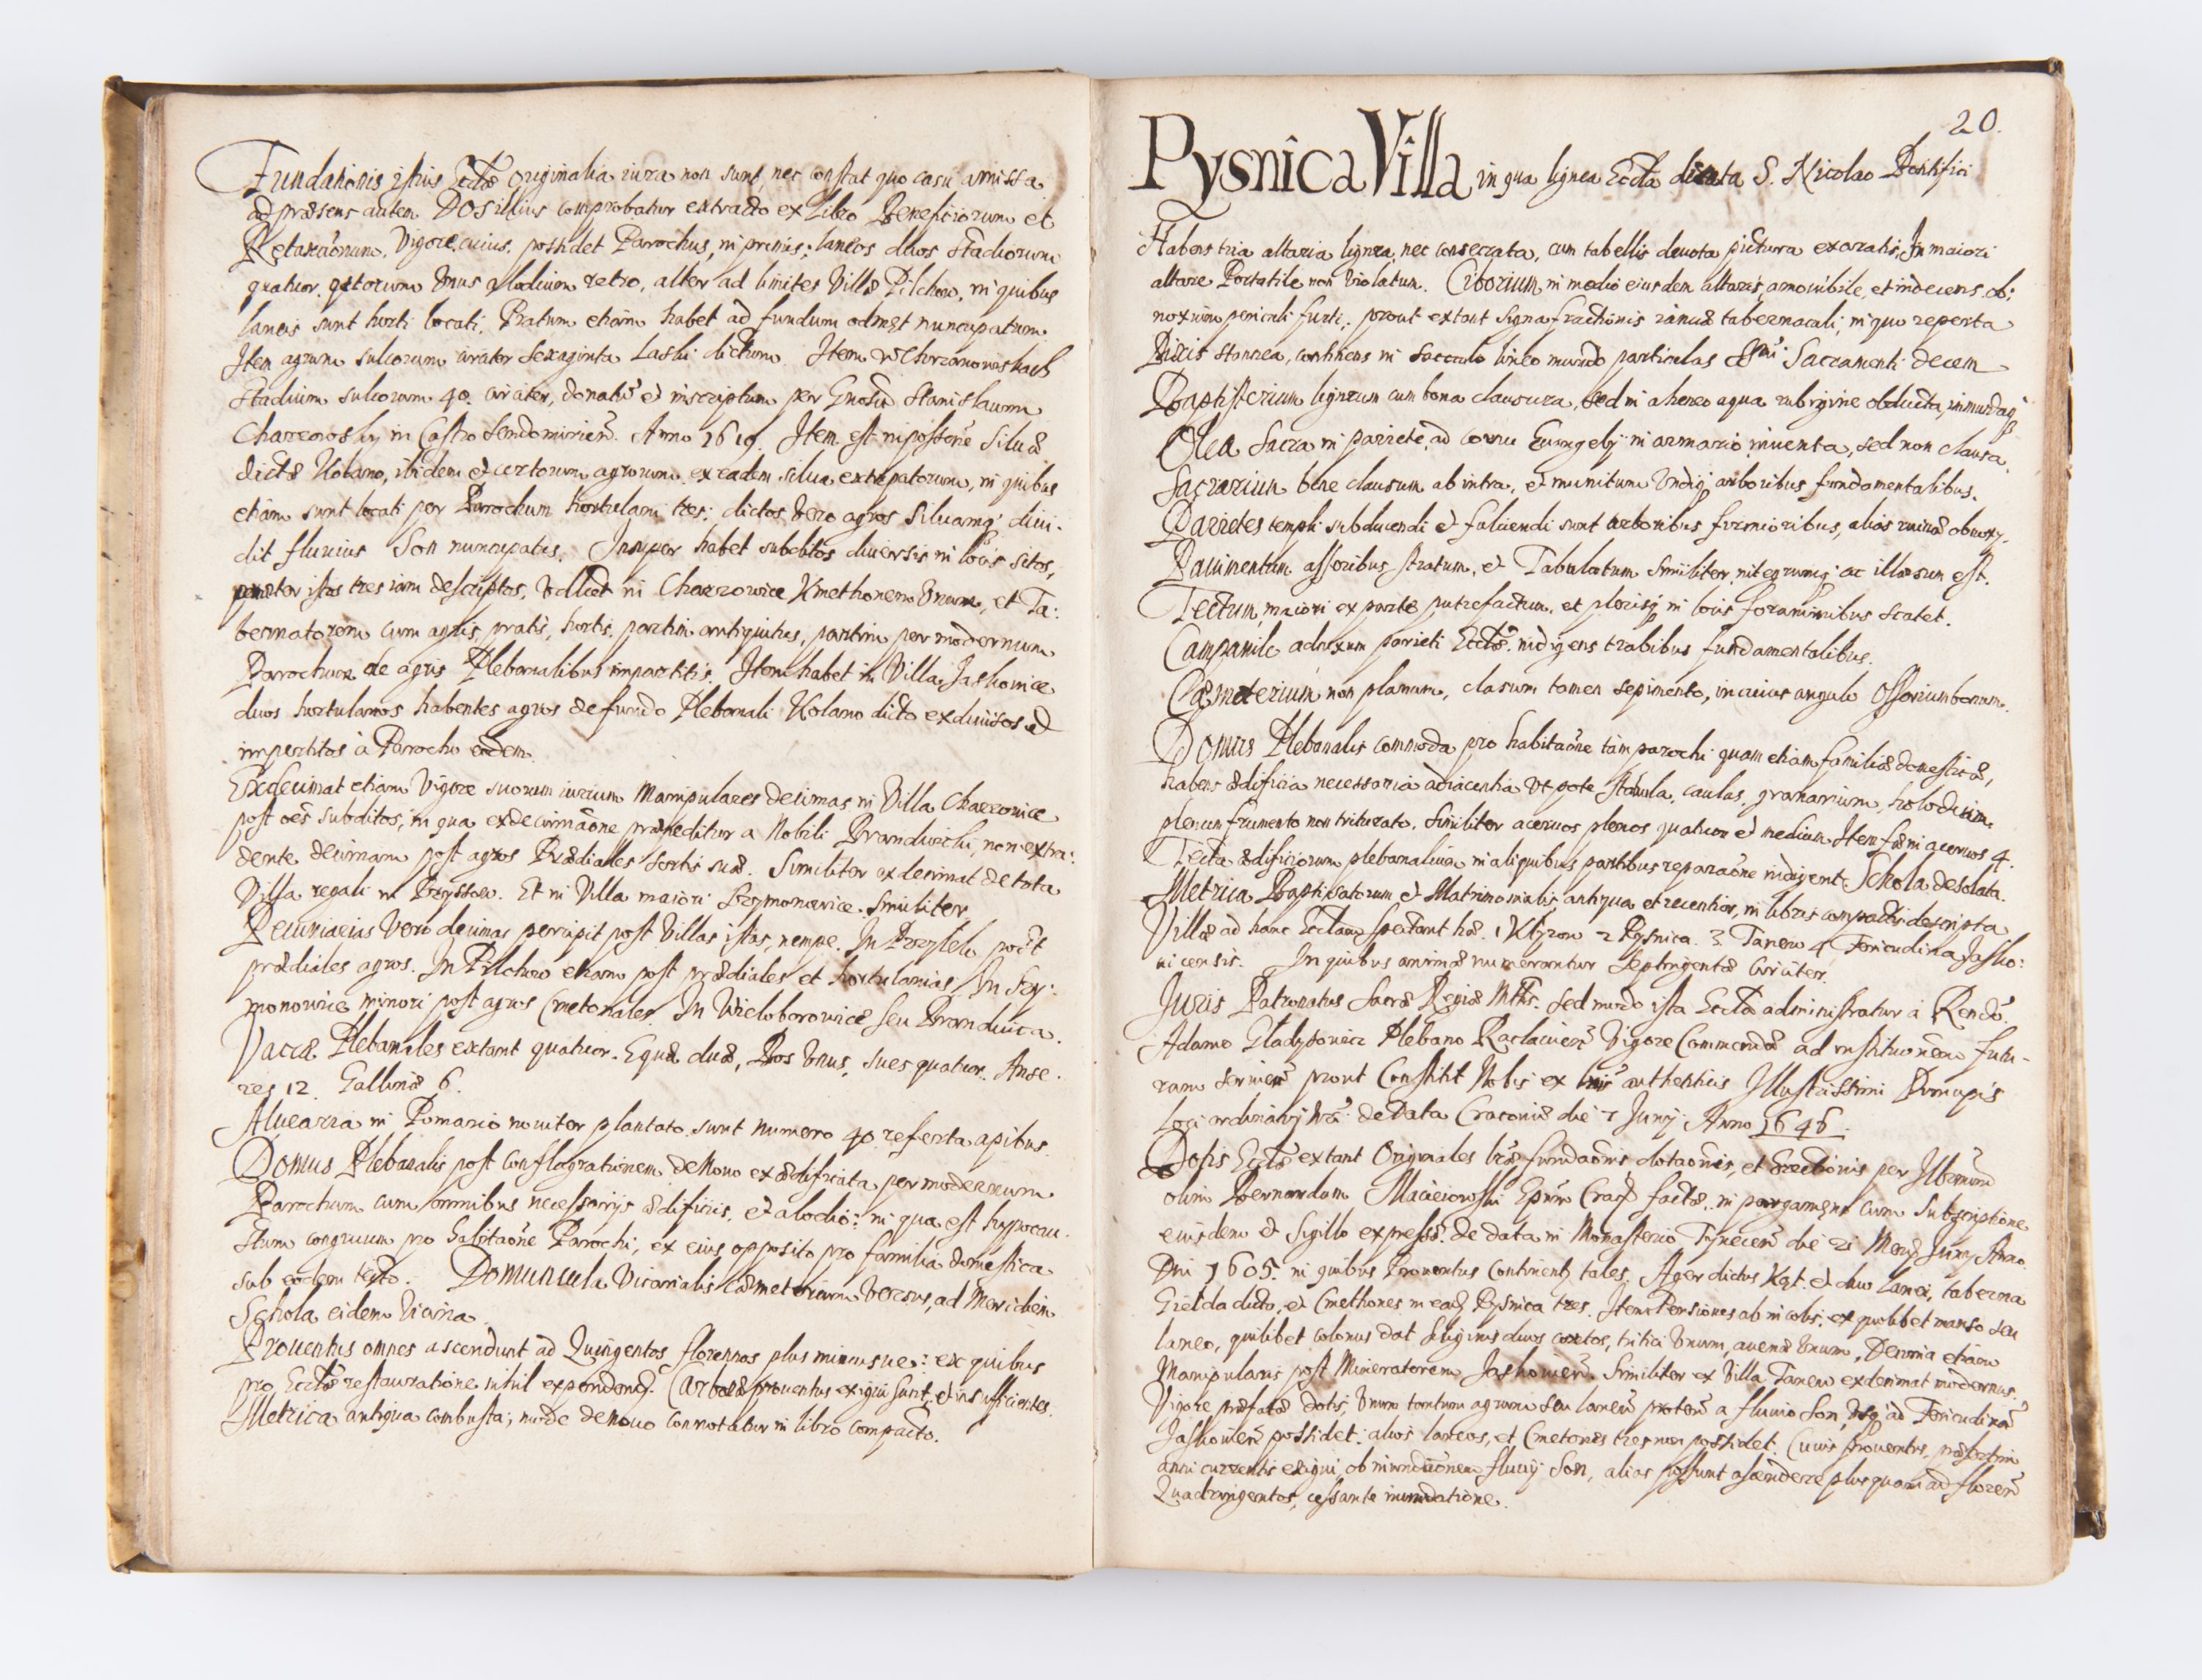 Fundationis istius Eccłæ Originalia iura non sunt, nec constat quo casu amissa.
ad præsens autem Dos illius comprobatur extracto ex Libro Beneficiorum et
Retaxationum. Vigore cuius possidet Parochus, in primis: laneos duos stadiorum
quatuor. quorum Unus alodium retro, alter ad limites Villæ Pilchow, in quibus
laneis sunt horti locati. Pratum etiam habet ad fundum nuncupatum.
Item agrum sulcorum circiter sexaginta Laski dictum. Item w Chrzanowskach
Stadium sulcorum 40 circiter, donatũ et inscriptum per Gnosũ Stanislaum
Charzewski in Castro Sendomirien̄. Anno 1619. Item est in possone Siluæ
dictæ Kolano, ibidem et certorum agrorum ex eadem silua extirpatorum, in quibus
etiam sunt locati per Parochum hortulani tres: dictos vero agros Siluamq̨ diui-
dit fluuius Son nuncupatus. Insuper habet subditos diuersis in locis sitos,
præter istos tres iam descriptos. Videlicet in Charzowice Kmethonem Unum, et Ta:
bernatorem cum agris, pratis, hortis, partim antiquitus, partim per modernum
Parochum de agris Plebanalibus impartitis. Item habet in Villa Jaskowice
duos hortulanos habentes agros de fundo Plebanali Kolano dicto exdiuisos et
impertitos à Parocho eodem.
Exdecimat etiam Vigore suorum iurium Manipulares decimas in Villa Charzowice
post oẽs subditos, in qua exdecimãone præpeditur a Nobili Brandwicki, non extra:
dente decimam post agros Prædiales sortis suæ. Similiter exdecimat de tota
Villa regali in Brzystow. Et in Villa maiori Szymonowice. Similiter
Pecuniarias Vero decimas percipit post Villas istas, nempe. In Przyszlow post
prædiales agros. In Pilchow etiam post prædiales et hortulanias. In Szy:
monowice minori post agros Cmetonales. In Wieloborowice seu Brandwica.
Vaccæ Plebanales extant quatuor. Equæ duæ, Bos Unus, sues quatuor. Anse:
res 12. Gallinæ 6.
Aluearia in Pomario nouiter plantato sunt numero 40. referta apibus.
Domus Plebanalis post conflagrationem de nouo exædificata per modernum
Parochum cum omnibus necessarijs ædificijs, et alodio: in qua est hypocau-
stum congruum pro habitaõne Parochi, ex eius opposito pro familia domestica
sub eodem tecto. Domuncula Vicarialis Cæmeterium versus, ad Meridiem
Schola eidem Vicina.
Prouentus omnes ascendunt ad Quingentos florenos plus minusue: ex quibus
pro Eccłæ restauratione nihil expenden̄. Carbonæ prouentus exigui sunt, et insufficientes.
Metrica antiqua combusta, nunc de nouo connotatur in libro compacto.
20.
Pysnica Villa in qua lignea Eccła dicata S. Nicolao Pontifici
Habens tria altaria lignea, nec consecrata, cum tabellis deuota pictura exaratis, In maiori
altare Portatile non violatum. Ciborium in medio eiusdem altaris, amouibile, et indecens. ob:
noxium periculi furti, prout extant signa fractionis ianuæ tabernaculi, in quo reperta
Pixis stannea, continens in sacculo lineo mundo particulas SSmi Sacramenti decem
Baptisterium ligneum cum bona clausura, sed in aheneo aqua rubigine obducta, immundaq̨
Olea Sacra in pariete ad cornu Euangelij in armario inuenta, sed non clausa.
Sacrarium bene clausum ab intra, et munitum Undiq̨ arboribus fundamentalibus.
Parietes templi subducendi et fulciendi sunt arboribus firmioribus, alias ruinæ obnoxij.
Pauimentum asseribus stratum, et Tabulatum Similiter, integrumq̨ ac illæsum est.
Tectum maiori ex parte putrefactum, et plerisq̨ in locis foraminibus scatet.
Campanile adnexum parieti Eccłæ. indigens trabibus fundamentalibus.
Cæmeterium non planum, clasum tamen sepimento, in cuius angulo Ossorium bonum.
Domus Plebanalis commoda pro habitaõne tàm parochi quam etiam familiæ domesticæ,
habens ædificia necessaria adiacentia Ut pote stabula, caulas, granarium, holodium
plenum frumento non triturato. Similiter aceruos plenos quatuor et medium. Item fæni aceruos 4.
Tecta ædificiorum plebanalium in aliquibus partibus reparaõne indigent. Schola desolata.
Metrica Baptisatorum et Matrimonialis, antiqua et recentior, in libris compactis descripta
Villæ ad hanc Eccłam spectant hæ. 1 Klyzow 2 Pysnica. 3. Tanew 4 Fericudina Jasko:
uicensis. In quibus animæ numerantur Septingentæ Circiter.
Juris Patronatus Sacræ Regiæ Mtis. sed modo ista Eccła administratur à Rendo.
Adamo Gladysowicz Plebano Raclauicen̄ Vigore Commendæ ad institutionem futu-
ram seruien̄ prout Constitit Nobis ex lr̃is authenticis Illustrissimi Principis
Loci ordinarij nrĩ de Data Cracouiæ die 7 Junij Anno 1646.
Dotis Eccłæ extant Originales lr̃æ fundaõnis, dotaõnis, et Erectionis per Illr̃mum
olim Bernardum Macieiowski Epũm Crac̃ factæ, in pargameno cum Subscriptione
eiusdem et Sigillo expresso. de data in Monasterio Tynecen̄ die 21 Mens̃ Junij Anno
Dni 1605. in quibus Prouentus Continents̃ tales. Ager dictus Kąt. et duo lanei, taberna
Gielda dicto, et Cmethones in ead̃ Pysnica tres. Item Pensiones ab incolis, ex quolibet manso seu
laneo, quilibet colonus dat siliginis duos coretos, tritici Unum, auenæ Unum. Decima etiam
Manipularis post Mineratorem Jaskowien̄. Similiter ex Villa Tanew exdecimat modernus.
Vigore præfatæ dotis, Unum tantum agrum seu laneum proten̄ a fluuio Son, Usq̨ ad Fericudinã
Jaskowien̄ possidet: alios laneos, et Cmetones tres non possidet. Cuius prouentus, præsertim
anni currentis exigui, ob inundationem fluuij Son, alias possunt ascendere plus quam ad floren̄
Quadringentos, cessante inundatione.